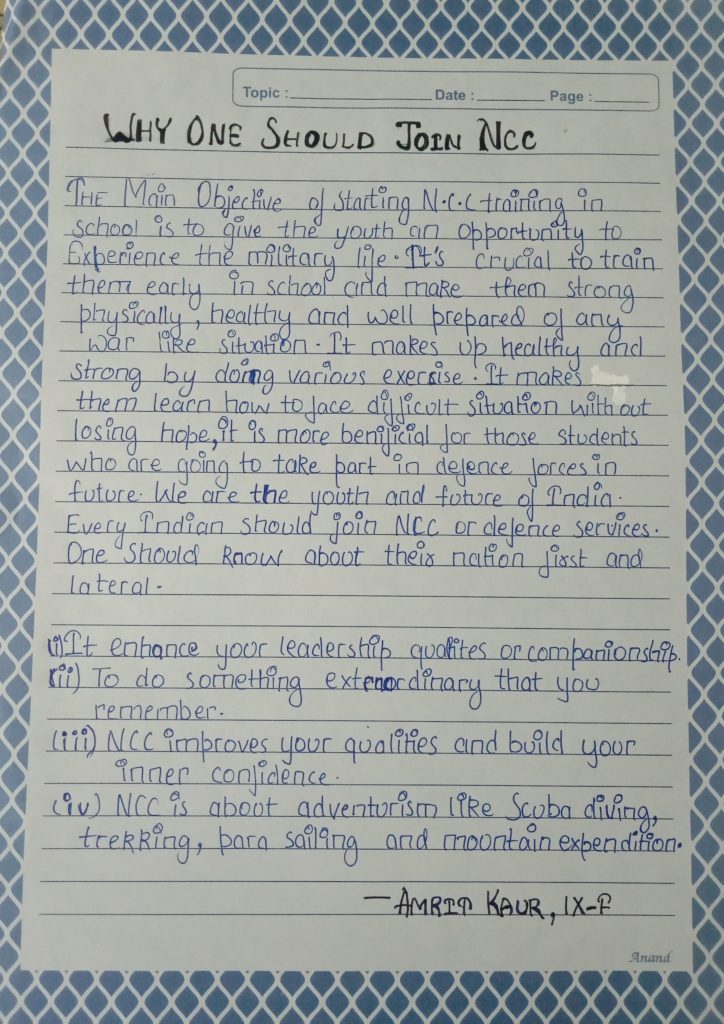 Topic : Date : Page :
WHY ONE SHOULD JOIN NCC
THE Main Objective of starting N.C.C training in
school is to give the youth an opportunity to
Experience the military life. It's crucial to train
them early in school and make them strong
physically, healthy and well prepared of any
war like situation. It makes up healthy and
strong by doing various exercise. It makes
them learn how to face difficult situation with out
losing hope, it is more benificial for those students
who are going to take part in defence forces in
future. We are the youth and future of India.
Every Indian should join NCC or defence services.
One should know about their nation first and
lateral.
(i) It enhance your leadership qualites or companionship.
(ii) To do something extraordinary that you
remember.
(iii) NCC improves your qualities and build your
inner confidence.
(iv) NCC is about adventurism like Scuba diving,
trekking, para sailing and mountain expendition.
— AMRIT KAUR, IX-F
Anand